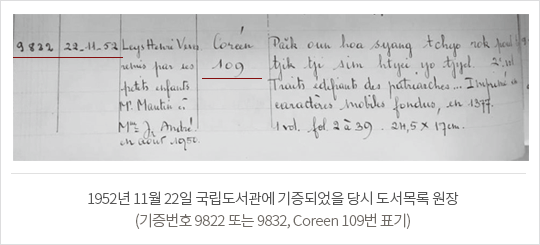 9832
22-11-52
Legs Henri Vever
remis par ses
petits enfants
Mr Mautin et
Mme J. André
en août 1950.
Coréen
109
Păik oun hoa syang tchyo rok
tjik tji sim htyei yo tjyel. 2e vol.
Traits édifiants des patriarches... Imprimé en
caractères mobiles fondus, en 1377.
1 vol. fol. 2 à 39. 24,5 × 17 cm.
1952년 11월 22일 국립도서관에 기증되었을 당시 도서목록 원장
(기증번호 9822 또는 9832, Coreen 109번 표기)